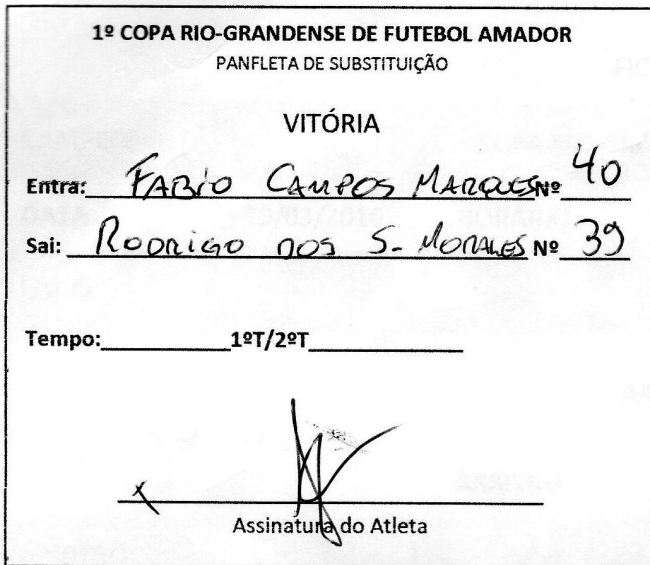 1º COPA RIO-GRANDENSE DE FUTEBOL AMADOR
PANFLETA DE SUBSTITUIÇÃO
VITÓRIA
Entra: FABIO CAMPOS MARQUES Nº 40
Sai: RODRIGO DOS S. MORALES Nº 39
Tempo:__________1ºT/2ºT____________
X
Assinatura do Atleta